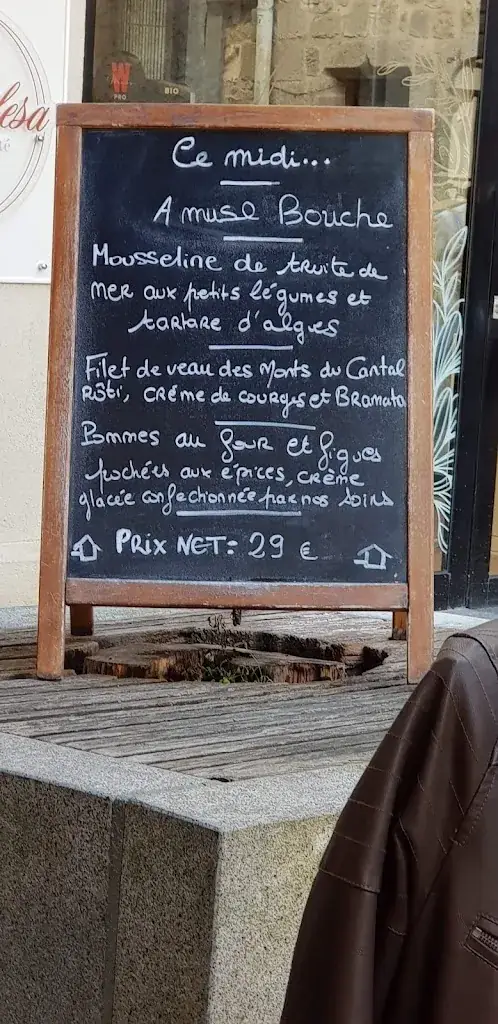 esa
W
PRO
BIO
Ce midi...
Amuse Bouche
Mousseline de truite de
mer aux petits légumes et
tartare d'algues
Filet de veau des Monts du Cantal
Rôti, crème de courges et Bramata
Pommes au four et figues
pochées aux épices, crème
glacée confectionnée par nos soins
Prix NET: 29 €